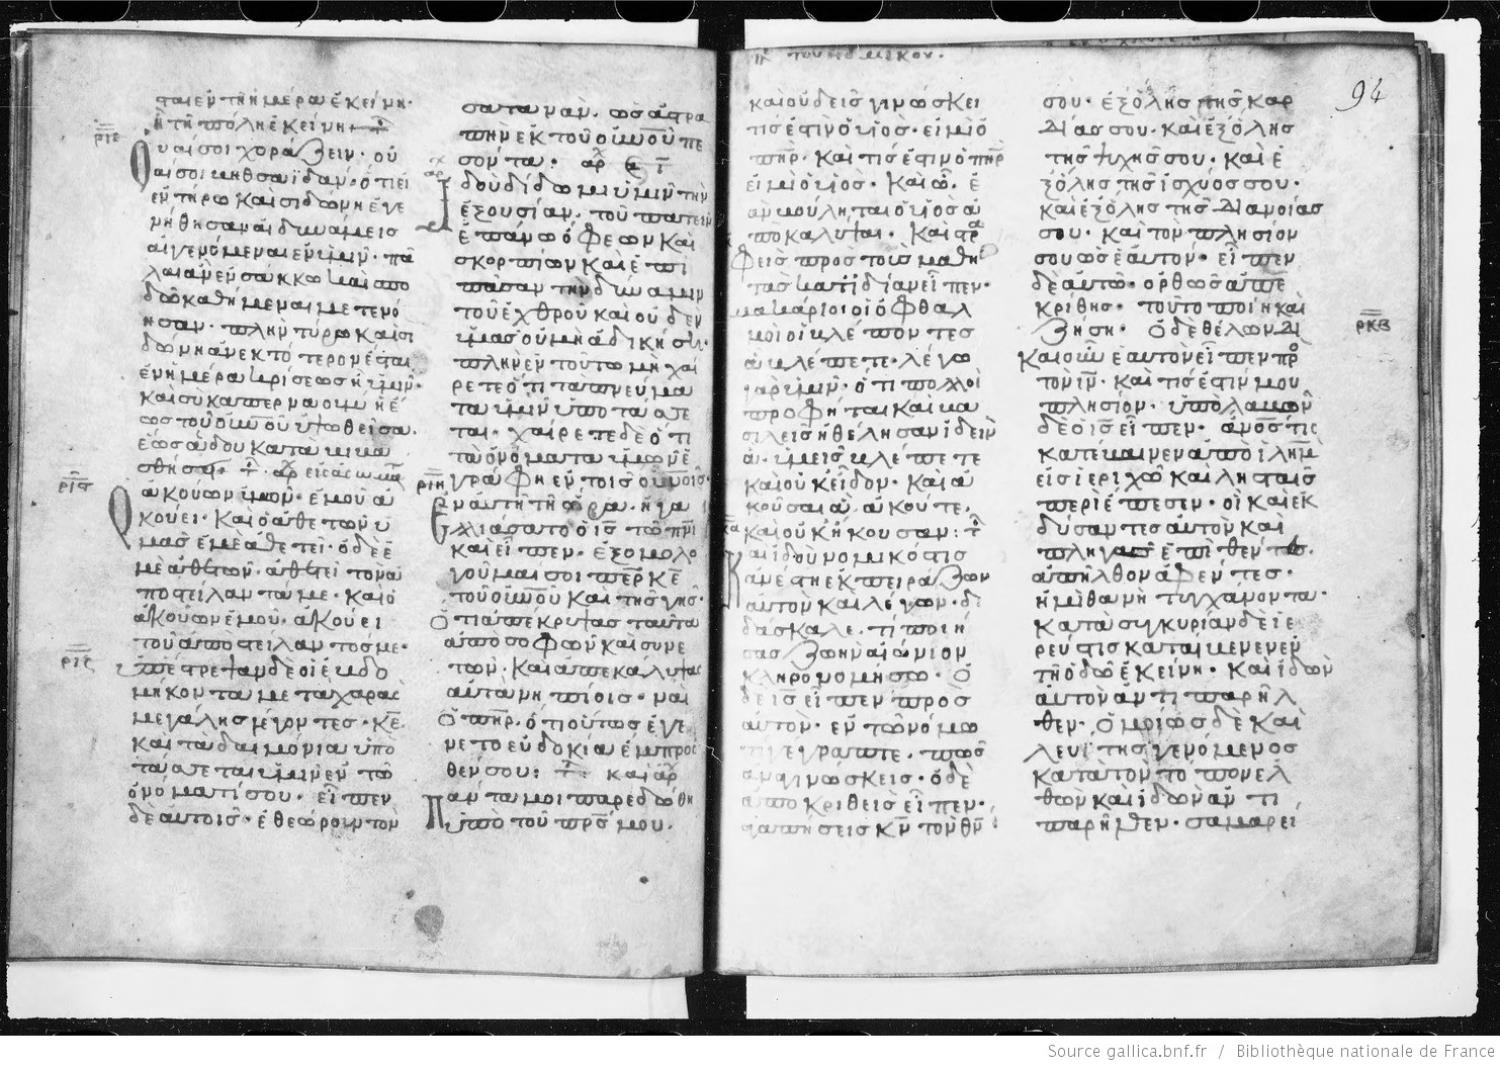 ται ἐν τῆ ἡμέρα ἐκείνη·
ἢ τῆ πόλη ἐκείνη
ριε
Οὐαί σοι χοραζειν· οὐ
αί σοι βηθσαϊδάν· ὅτι εἰ
ἐν τύρω καὶ σιδῶνι ἐγε
νήθησαν αἱ δυνάμεις
αἱ γενόμεναι ἐν ὑμῖν· πά
λαι ἂν ἐν σάκκω καὶ σπο
δῶ καθήμεναι μετενό
ησαν· πλὴν τύρω καὶ σι
δῶνι ἀνεκτότερον ἔσται
ἐν ἡμέρα κρίσεως ἢ ὑμῖν·
καὶ σὺ καπερναοὺμ ἡ ἕ
ως τοῦ οὐνοῦ ὑψωθεῖσα·
ἕως ἅδου καταβιβα
σθήση·
ριϛ
Ὁ ἀκούων ὑμῶν· ἐμοῦ ἀ
κούει· καὶ ὁ ἀθετῶν ὑ
μᾶς ἐμὲ ἀθετεῖ· ὁ δὲ ἐ
μὲ ἀθετῶν· ἀθετεῖ τὸν ἀ
ποστείλαντά με· καὶ ὁ
ἀκούων ἐμοῦ· ἀκούει
τοῦ ἀποστείλαντός με·
ριζ
ὑπέστρεψαν δὲ οἱ ἑβδο
μήκοντα μετὰ χαρᾶς
μεγάλης λέγοντες· κε
καὶ τὰ δαιμόνια ὑπο
τάσσεται ἡμῖν ἐν τῶ
ὀνόματί σου· εἶπεν
δὲ αὐτοῖς· ἐθεώρουν τὸν
σατανᾶν· ὡς ἀστρα
πὴν ἐκ τοῦ οὐνοῦ πε
σόντα·
Ἰδοὺ δίδωμι ὑμῖν τὴν
ἐξουσίαν· τοῦ πατεῖν
ἐπάνω ὄφεων καὶ
σκορπίων καὶ ἐπὶ
πᾶσαν τὴν δύναμιν
τοῦ ἐχθροῦ καὶ οὐδὲν
ὑμᾶς οὐ μὴ ἀδικήσει·
πλὴν ἐν τούτω μὴ χαί
ρετε ὅτι τὰ πνεύμα
τα ὑμῖν ὑποτάσσε
ται· χαίρετε δὲ ὅτι
τὰ ὀνόματα ὑμῶν ἐ
γράφη ἐν τοῖς οὐνοῖς·
ριη
Ἐν αὐτῆ τῆ ὥρα· ἠγα
λλιάσατο ὁ ις τῶ πνι
καὶ εἶπεν· ἐξομολο
γοῦμαί σοι περ κε
τοῦ οὐνοῦ καὶ τῆς γῆς·
ὅτι ἀπέκρυψας ταῦτα
ἀπὸ σοφῶν καὶ συνε
τῶν· καὶ ἀπεκάλυψας
αὐτὰ νηπίοις· ναὶ
ὁ πηρ· ὅτι οὕτως ἐγέ
νετο εὐδοκία ἔμπροσ
θέν σου:
Πάντα μοι παρεδόθη
ὑπὸ τοῦ πρς μου·
94
καὶ οὐδεὶς γινώσκει
τίς ἐστιν ὁ υἱός· εἰ μὴ ὁ
πηρ· καὶ τίς ἐστιν ὁ πηρ
εἰ μὴ ὁ υἱός· καὶ ὧ ἐ
ὰν βούληται ὁ υἱὸς ἀ
ποκαλύψαι· καὶ στρα
φεὶς πρὸς τοὺς μαθη
τὰς κατιδίαν εἶπεν·
μακάριοι οἱ ὀφθαλ
μοὶ οἱ βλέποντες
ἃ βλέπετε· λέγω
γὰρ ὑμῖν· ὅτι πολλοὶ
προφῆται καὶ βα
σιλεῖς ἠθέλησαν ἰδεῖν
ἃ ὑμεῖς βλέπετε
καὶ οὐκ εἶδον· καὶ ἀ
κοῦσαι ἃ ἀκούτε·
καὶ οὐκ ἤκουσαν:
Καὶ ἰδοὺ νομικός τις
ἀνέστη ἐκπειράζων
αὐτὸν καὶ λέγων· δι
δάσκαλε· τί ποιή
σας ζωὴν αἰώνιον
κληρονομήσω· ὁ
δὲ ις εἶπεν πρὸς
αὐτόν· ἐν τῶ νόμω
τί γέγραπται· πῶς
ἀναγινώσκεις· ὁ δὲ
ἀποκριθεὶς εἶπεν·
ἀγαπήσεις κν τὸν θν
σου· ἐξ ὅλης τῆς καρ
δίας σου· καὶ ἐξ ὅλης
τῆς ψυχῆς σου· καὶ ἐ
ξ ὅλης τῆς ἰσχύος σου·
καὶ ἐξ ὅλης τῆς διανοίας
σου· καὶ τὸν πλησίον
σου ὡς ἑαυτόν· εἶπεν
δὲ αὐτῶ· ὀρθῶς ἀπε
κρίθης· τοῦτο ποίη καὶ
ζήση·
ρκβ
ὁ δὲ θέλων δι
καιοῦν ἑαυτὸν εἶπεν πρὸ
τὸν ιν· καὶ τίς ἐστίν μου
πλησίον· ὑπολαβὼν
δὲ ὁ ις εἶπεν· ἀνος τις
κατέβαινεν ἀπὸ ιλημ
εἰς ἱεριχὼ καὶ λησταῖς
περιέπεσεν· οἳ καὶ ἐκ
δύσαντες αὐτὸν καὶ
πληγὰς ἐπιθέντες·
ἀπῆλθον ἀφέντες·
ἡμιθανῆ τυγχάνοντα·
κατὰ συγκυρίαν δὲ ἱε
ρεύς τις κατέβαινεν ἐν
τῆ ὁδῶ ἐκείνη· καὶ ἰδὼν
αὐτὸν ἀντιπαρῆλ
θεν· ὁμοίως δὲ καὶ
λευΐτης γενόμενος
κατὰ τὸν τόπον ἐλ
θὼν καὶ ἰδὼν ἀντι
παρῆλθεν· σαμαρεί
Source gallica.bnf.fr / Bibliothèque nationale de France